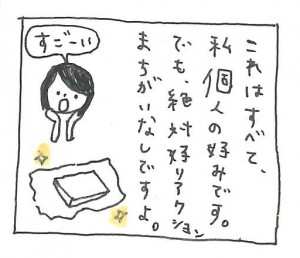 これはすべて、
私個人の好みです。
でも、絶対好リアクション
まちがいなしですよ。
すご〜い